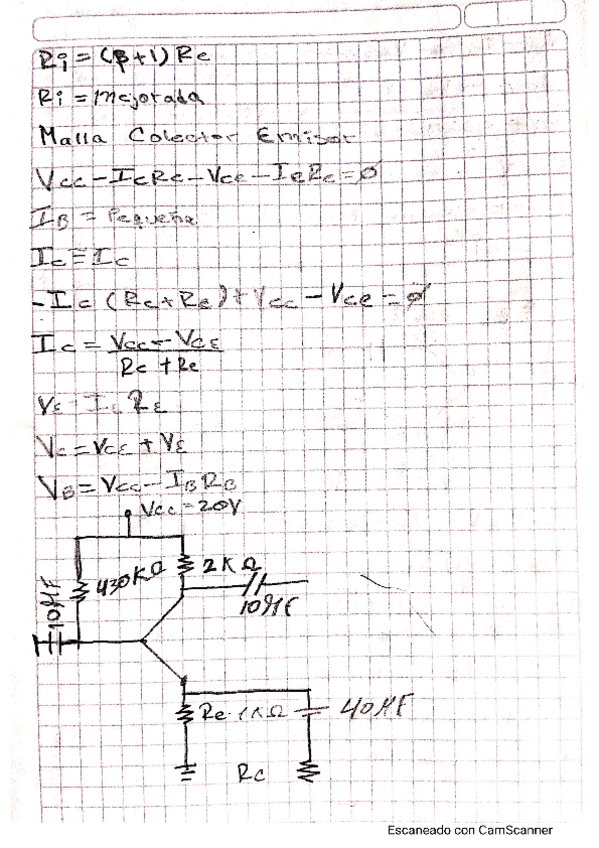 Ri = (β+1) Re
Ri = mejorada
Malla Colector Emisor
Vcc - IcRc - Vce - IeRe = ∅
IB = Pequeña
Ic ≅ Ic
-Ic (Rc + Re) + Vcc - Vce = ∅
Ic = Vcc - VCE
Rc + Re
VE = Ic RE
Vc = VCE + VE
VB = Vcc - IB RB
Vcc = 20V
430KΩ
2KΩ
10μF
10μF
Re = 1KΩ
40μF
Rc
Escaneado con CamScanner